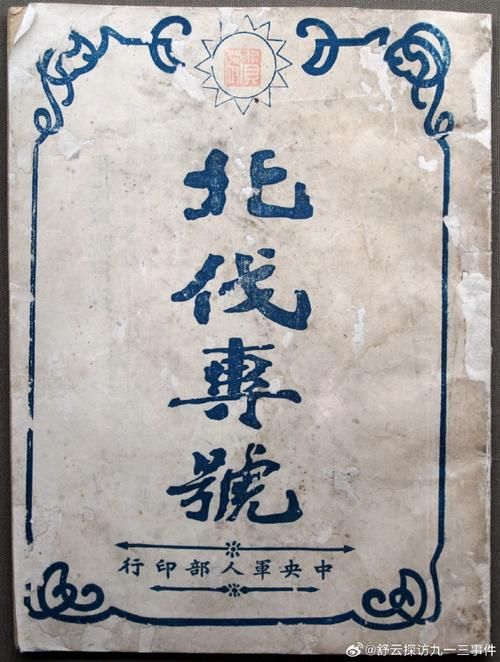 北伐專號
中央軍人部印行
@舒云探访九一三事件